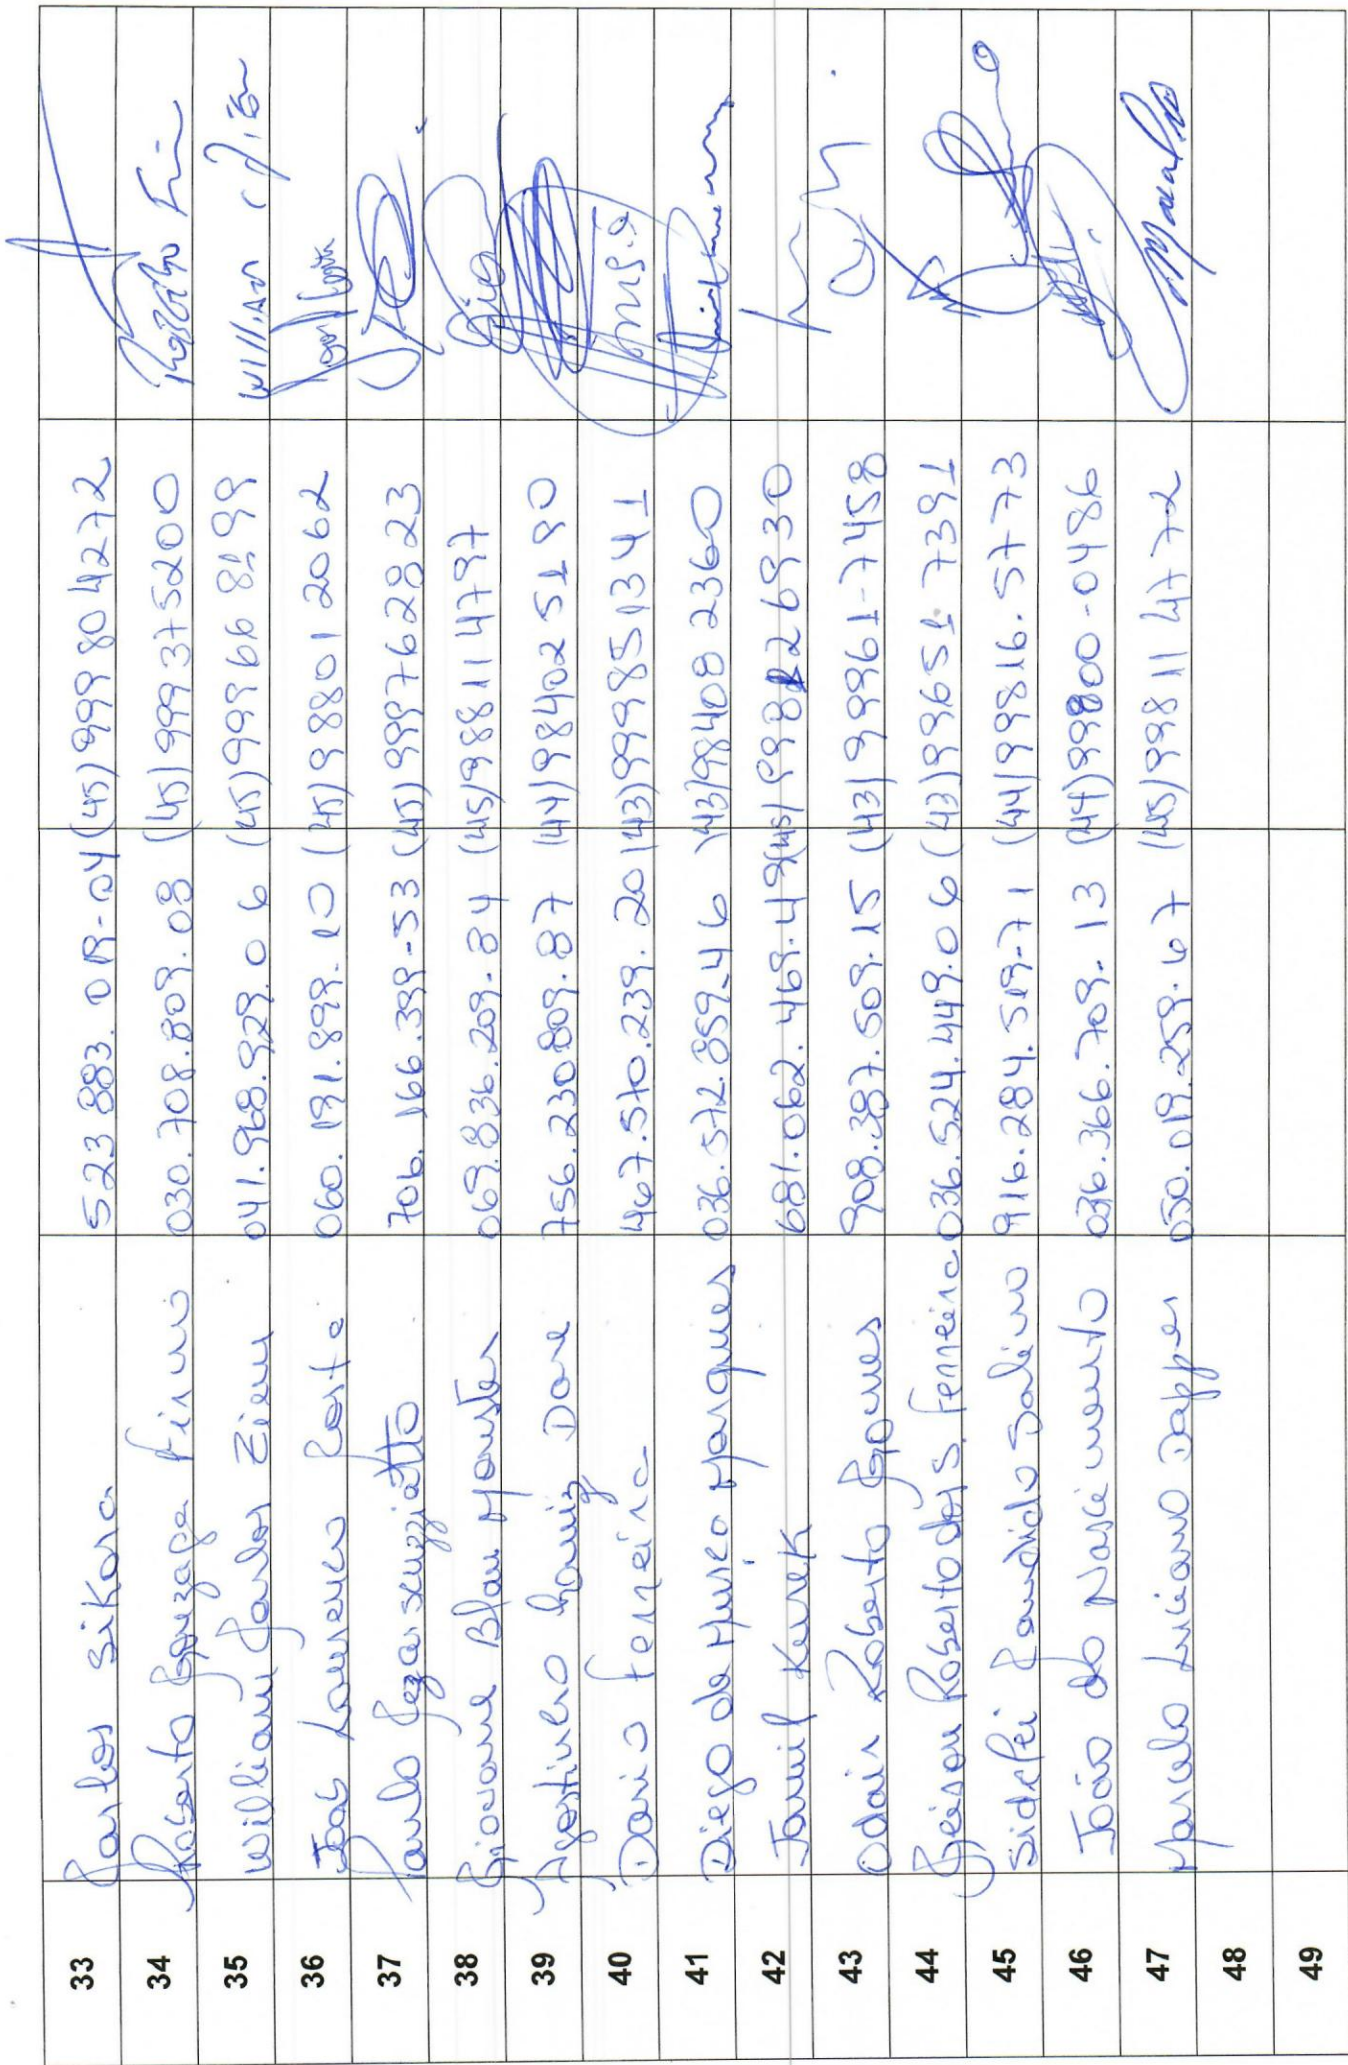 33 Carlos Sikora 523 883. 019-04 (45) 999 80 4272
34 Roberto Gonzaga Firmino 030.708.809.08 (45) 999 37 5200 Roberto
35 William Carlos Ziem 041.968.929.06 (45) 999 66 8199 William
36 José Lourenço Costa 060.191.899-10 (45) 98801 2062
37 Paulo Cezar scuzziatto 706.166.399-53 (45) 99976 28 23
38 Giovane Blau 069.836.209-84 (45) 98811 4797
39 Agostinho Dore 756.230809.87 (44) 98402 51 80
40 Dario Ferreira 467.570.239.20 (43) 99985 1341
41 Diego de Marques 036.572.859-46 (43) 98408 2360
42 Jamil Kerek 681.062.469.49 (45) 69 30
43 Odair Roberto Gomes 908.387.509.15 (43) 99961-7458
44 Geison Roberto dos S. Ferreira 036.524.449.06 (43) 99651.7391
45 Sidclei Candido Salino 916.284.519-71 (44) 99816.5773
46 João do Nascimento 036.366.709-13 (44) 99800-0486
47 Marcelo Luciano Dapper 050.019.259.67 (45) 99811 4772 Marcelo
48
49